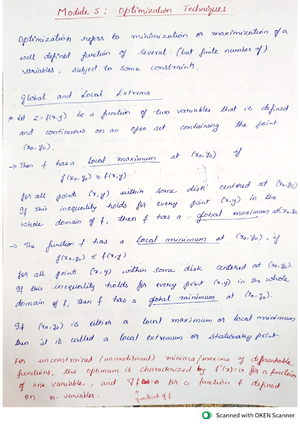 Module 5 : Optimization Techniques.
Optimization refers to minimization or maximization of a
well defined function of several (but finite number of)
variables, subject to some constraints.
Global and Local Extrema
Let z = f(x,y) be a function of two variables that is defined
and continuous on an open set containing the point
(x₀,y₀).
→ Then f has a local maximum at (x₀,y₀) if
f(x₀,y₀) ≥ f(x,y)
for all points (x,y) within some disk centered at (x₀,y₀)
If this inequality holds for every point (x,y) in the
whole domain of f, then f has a global maximum at (x₀,y₀)
→ The function f has a local minimum at (x₀,y₀), if
f(x₀,y₀) ≤ f(x,y)
for all points (x,y) within some disk centered at (x₀,y₀).
If this inequality holds for every point (x,y) in the whole
domain of f, then f has a global minimum at (x₀,y₀).
If (x₀,y₀) is either a local maximum or local minimum
then it is called a local extremum or stationary point
For unconstrained minima/maxima of differentiable
functions, the optimum is characterized by f'(x)=0 for a function
of one variable, and ∇f=0 for a function f defined
on n-variables.
gradient of f
Scanned with OKEN Scanner